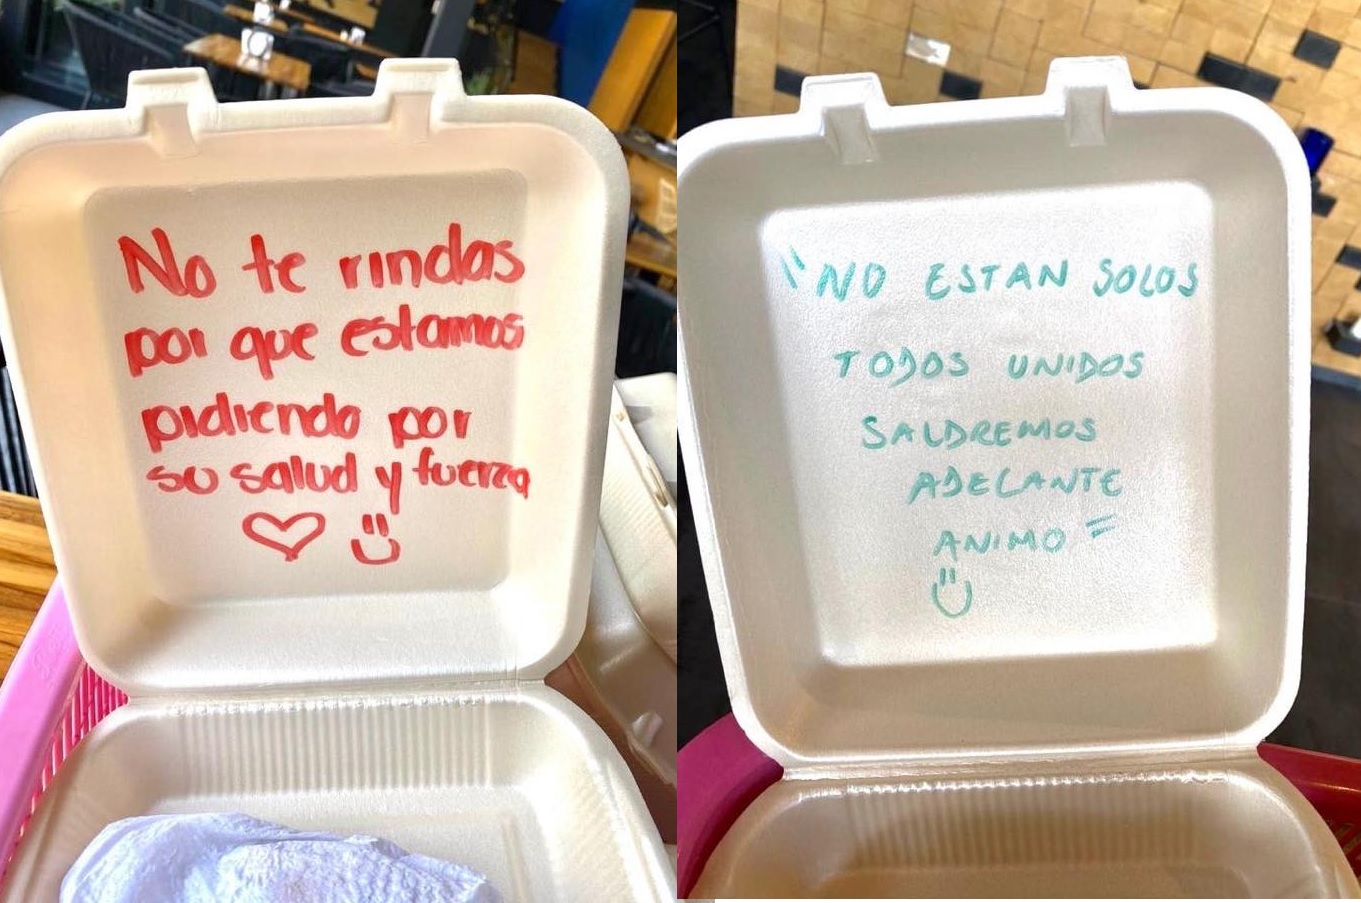 No te rindas
por que estamos
pidiendo por
su salud y fuerza
"NO ESTAN SOLOS
TODOS UNIDOS
SALDREMOS
ADELANTE
ANIMO"